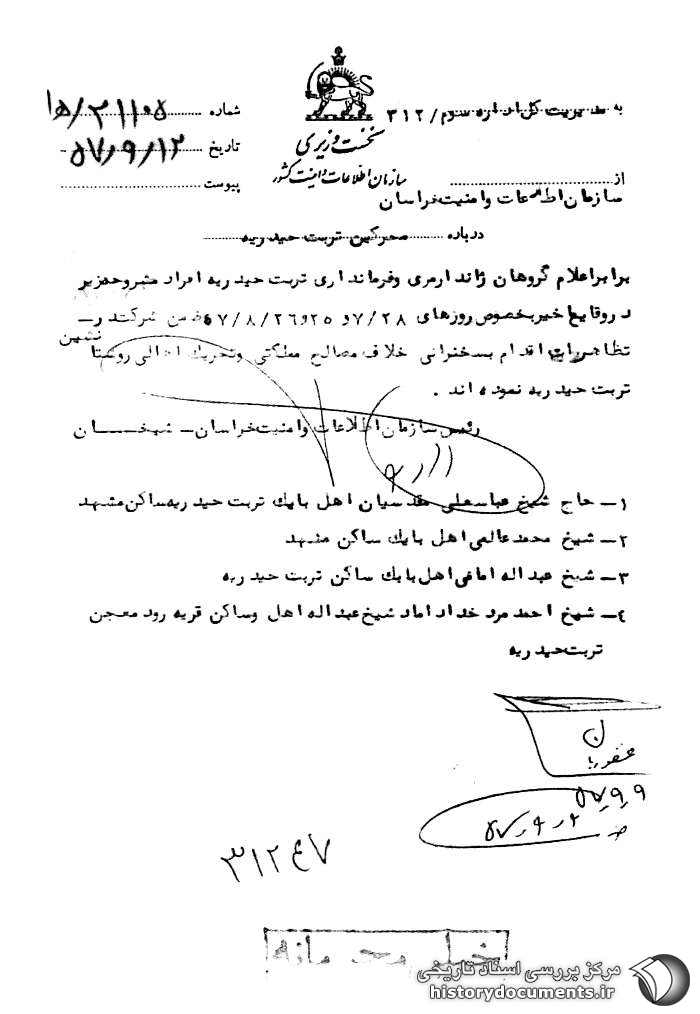 به مدیریت کل اداره سوم/ ۳۱۲
شماره ۲۱۱۰۵/ه۱
نخست وزیری
تاریخ ۵۷/۹/۱۲
سازمان اطلاعات و امنیت کشور
از
پیوست
سازمان اطلاعات و امنیت خراسان
درباره محرکین تربت حیدریه
برابر اعلام گروهان ژاندارمری و فرمانداری تربت حیدریه افراد مشروحه زیر
در وقایع اخیر بخصوص روزهای ۷/۲۸ و ۲۵ و ۵۷/۸/۲۶ ضمن شرکت در
تظاهرات اقدام بسخنرانی خلاف مصالح مملکتی وتحریک اهالی روستا نشین
تربت حیدریه نموده اند .
رئیس سازمان اطلاعات وامنیت خراسان ـ شیخان
۱ـ حاج شیخ عباسعلی مقدسیان اهل بایک تربت حیدریه ساکن مشهد
۲ـ شیخ محمد عالمی اهل بایک ساکن مشهد
۳ـ شیخ عبداله امامی اهل بایک ساکن تربت حیدریه
٤ـ شیخ احمد مرد خدا داماد شیخ عبداله اهل وساکن قریه رود معجن
تربت حیدریه
۵۷/۹/۹
۳۱۲٤۷
خیلی محرمانه
مرکز بررسی اسناد تاریخی
historydocuments.ir